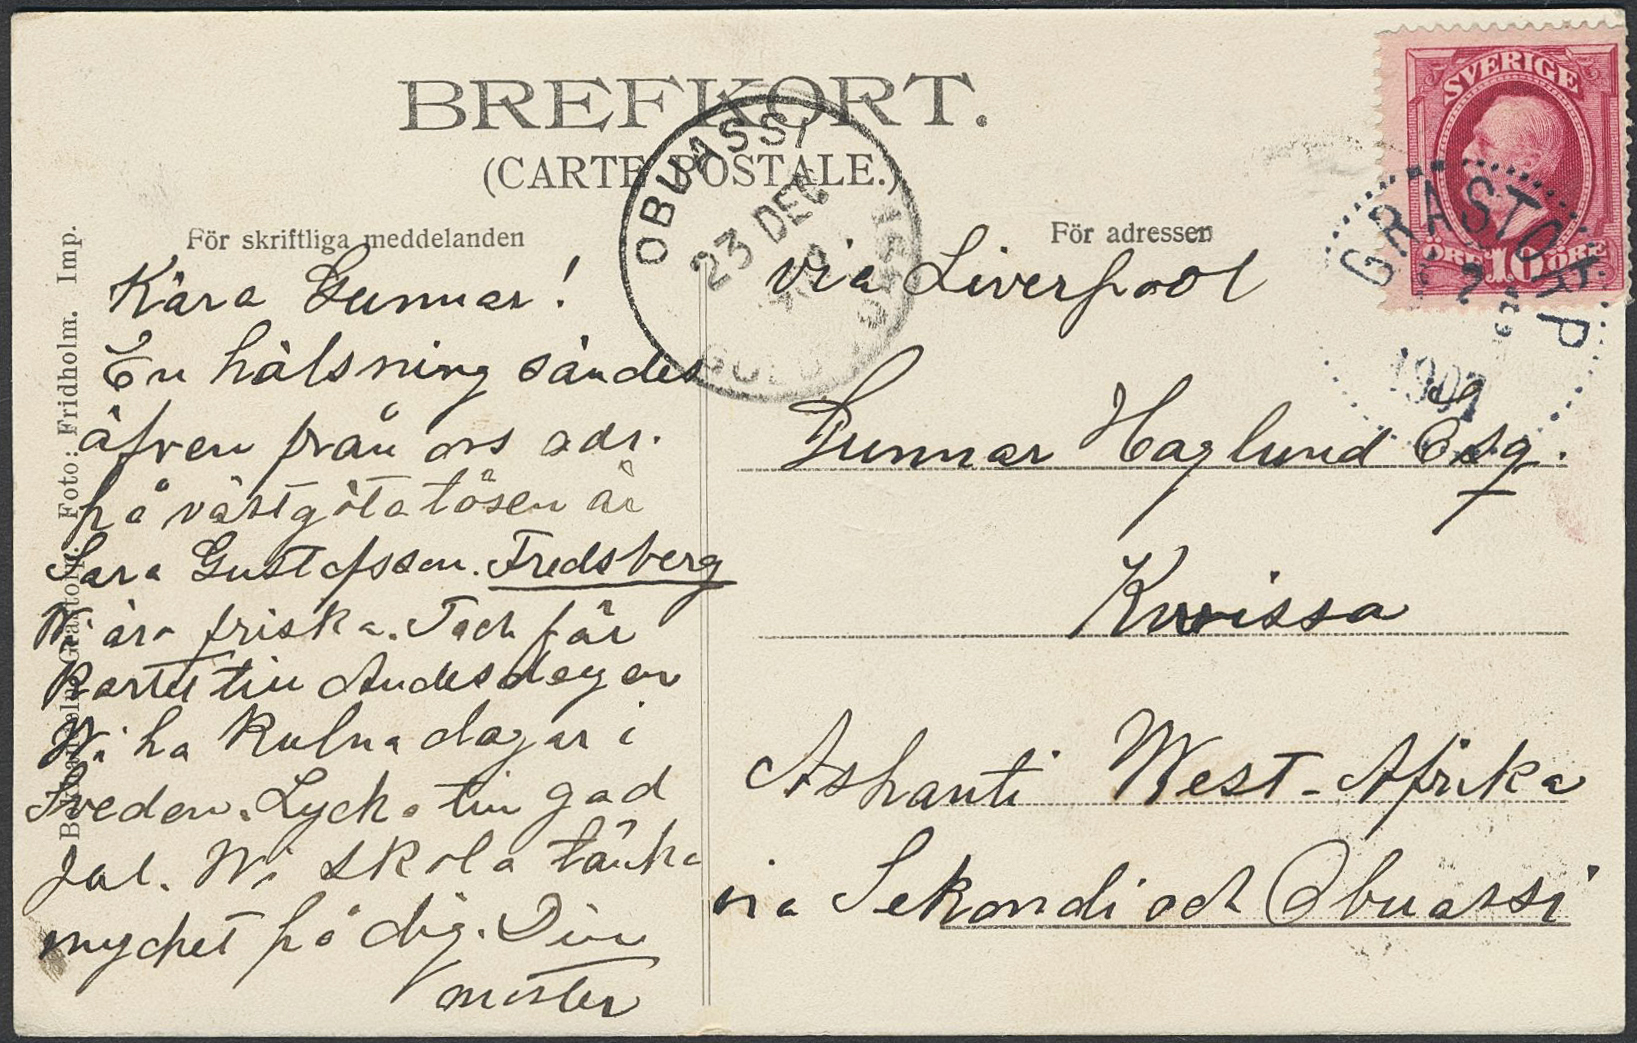 BREFKORT.
(CARTE POSTALE.)
För skriftliga meddelanden
För adressen
SVERIGE
ÖRE 10 ÖRE
GRÄSTORP
2
1907
OBUASSI
23 DEC
GOLD COAST
Foto: Fridholm. Imp.
Kära Gunnar!
En hälsning sändes
äfven från oss adr.
på västgötatösen är
Sara Gustafsson. Fredsberg
Wi äro friska. Tack för
kortet till
Wi ha kulna dagar i
Sveden. Lycka till god
Jul. Wi skola tänka
mycket på dig. Din
moster
via Liverpool
Gunnar Haglund Esq.
Kwissa
Ashanti West-Afrika
via Sekondi och Obuassi